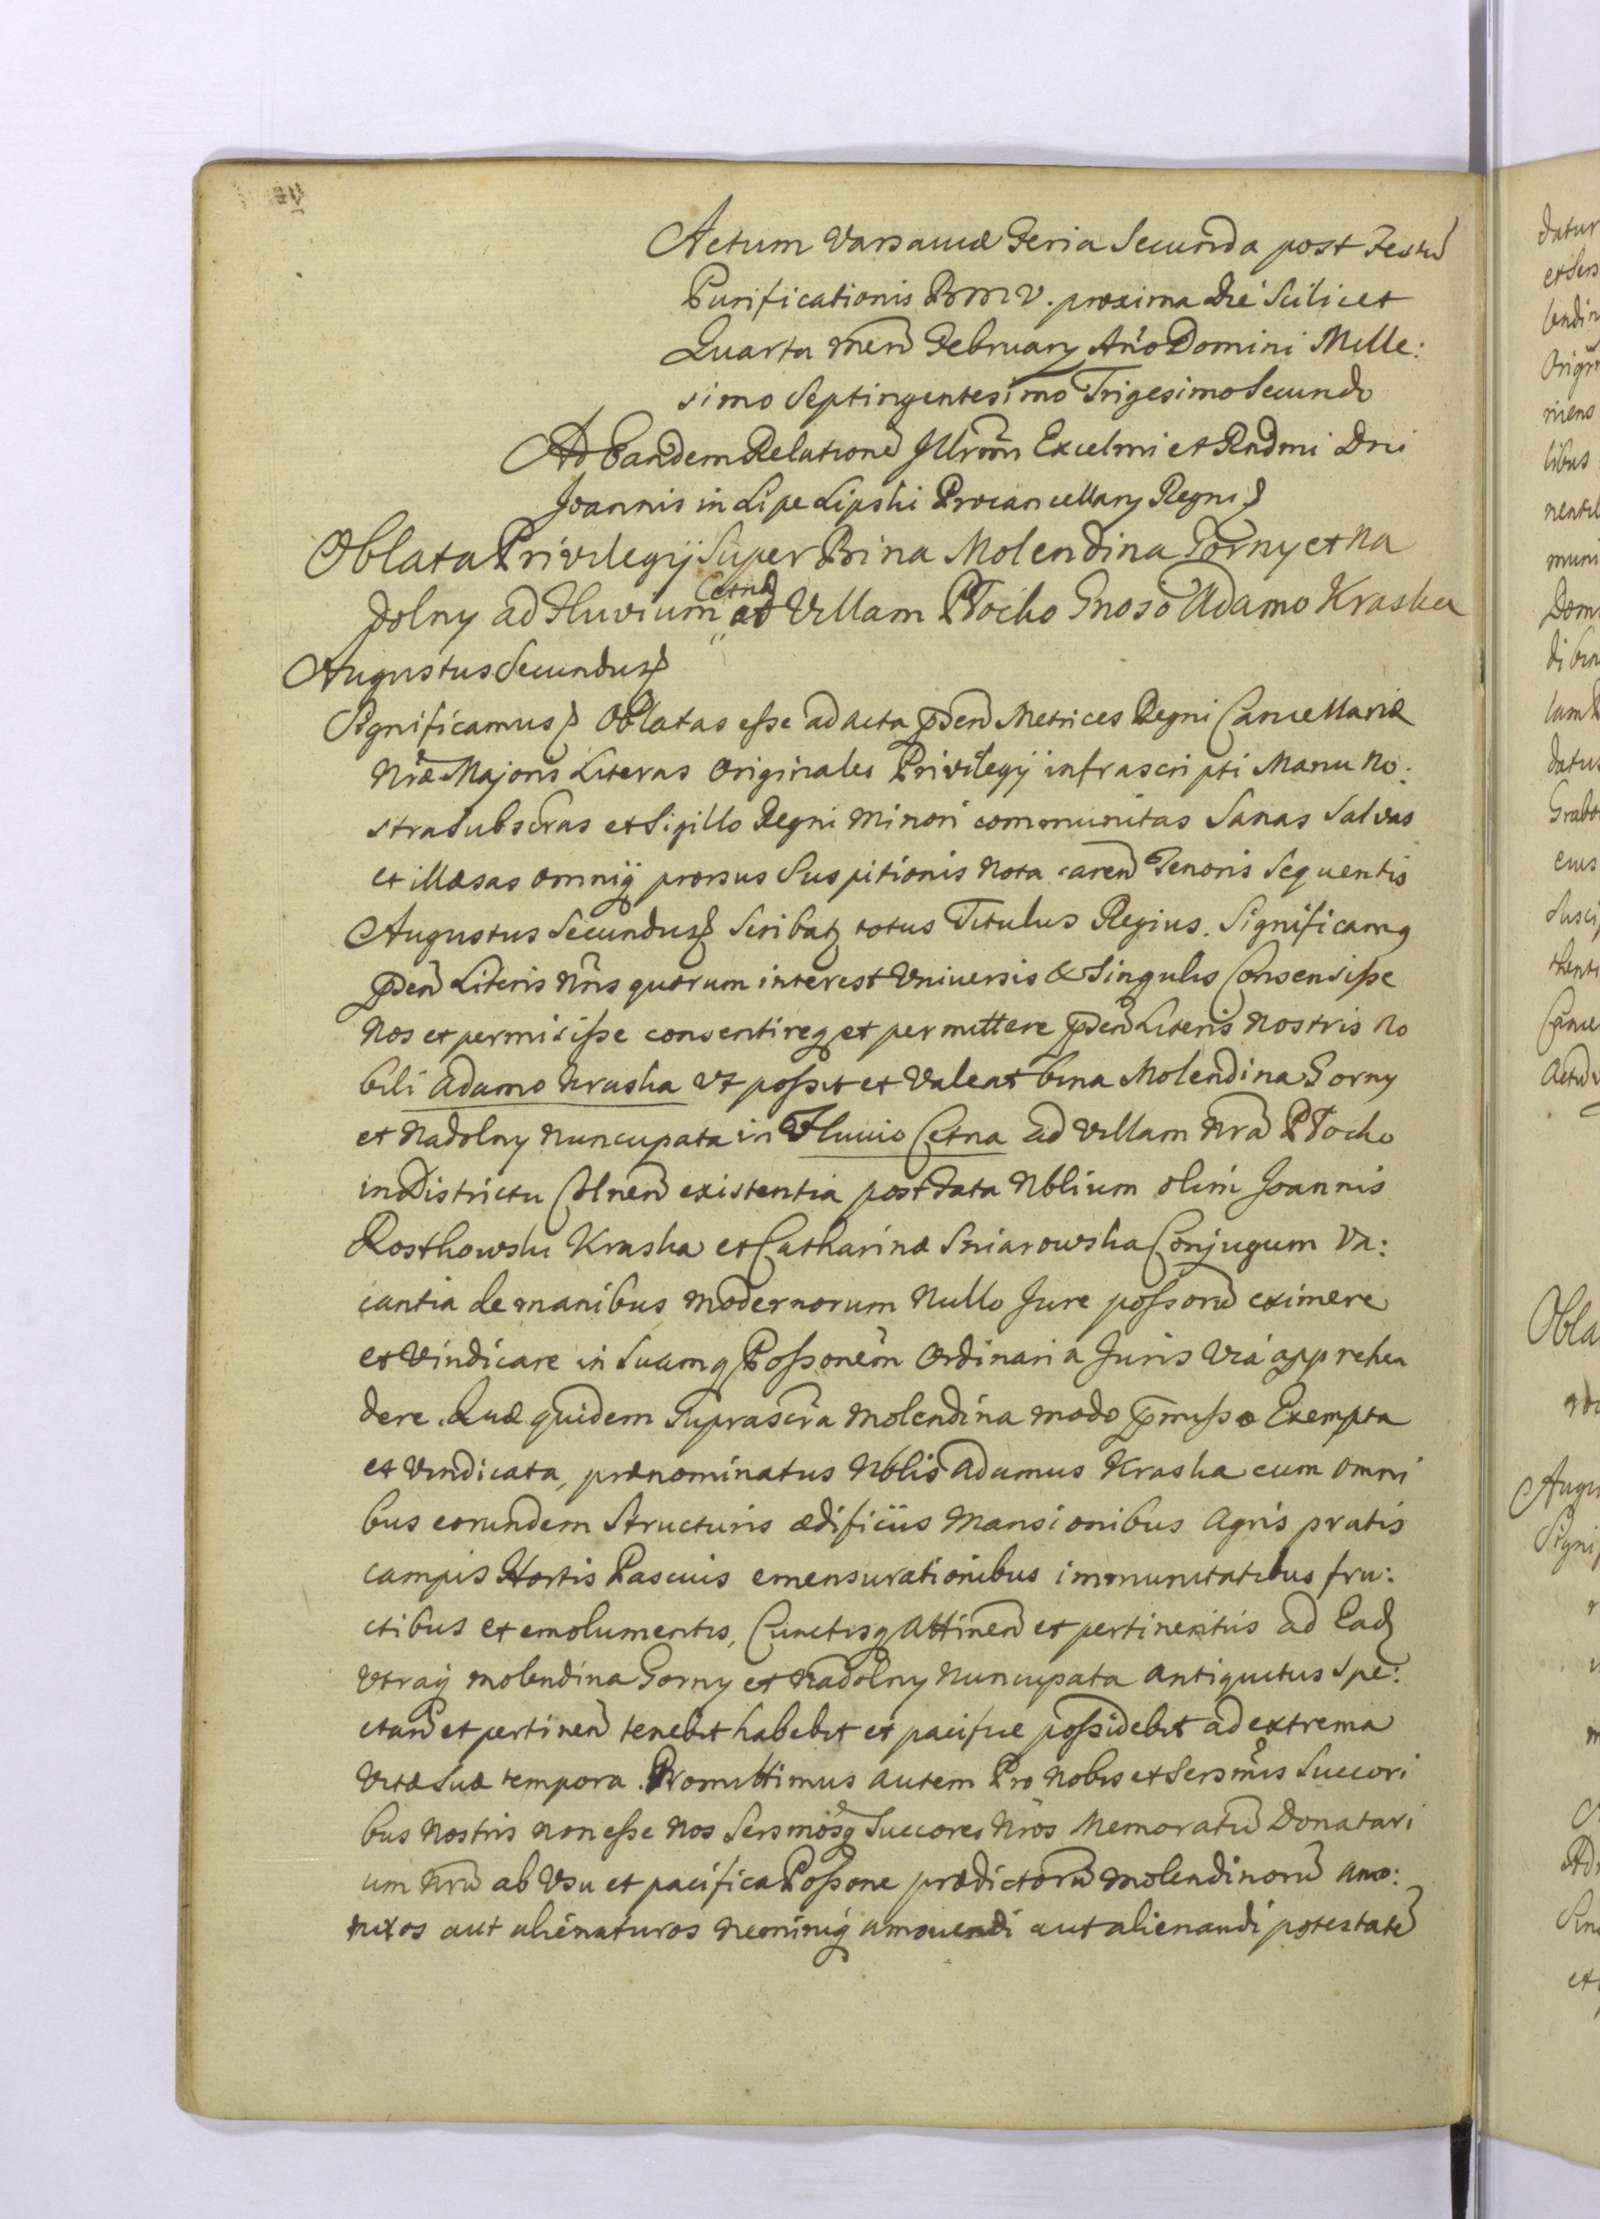 Actum Varsaviæ Feria Secunda post Festũ
Purificationis BMV. proxima die Scilicet
Quarta men̄ Februarij An̄o Domini Mille:
simo Septingentesimo Trigesimo Secundo
Ad Eandem Relationē Illrm̄i Excelmi et Rndmi Dni
Joannis in Lipe Lipski Procancellarij Regni
Oblata Privilegij Super Bina Molendina Gorny et Na
dolny ad Fluvium Cetna ad Villam Ptocko Gnoso Adamo Kraska
Augustus Secundus
Significamus Oblatas esse ad Acta p̄sen̄ Metrices Regni Cancellariæ
Nr̄æ Majoris Literas Originales Privilegij infrascripti Manu No:
stra Subscras et Sigillo Regni Minori communitas Sanas Salvas
et illæsas omniq̃ prorsus Suspitionis Nota caren̄ Tenoris Sequentis
Augustus Secundus Scribatz totus Titulus Regius. Significamq
p̄sen̄ Literis Nr̄is quorum interest Universis & Singulis Consensisse
Nos et permisisse consentireq et permittere p̄sen̄ Literis Nostris No
bili Adamo Kraska Vt possit et Valeat bina Molendina Gorny
et Nadolny nuncupata in Fluvio Cetna ad Villam Nrā Ptocko
in Districtu Colnen̄ existentia post fata Nblium olim Joannis
Rostkowski Kraska et Catharinæ Sniarowska Conjugum Va:
cantia de manibus modernorum Nullo Jure possorū eximere
et Vindicare in Suamq Possonem̄ Ordinaria Juris Via apprehen
dere. Quæ quidem Suprascr̄a Molendina modo p̄misso Exempta
et Vindicata, prænominatus Nblis Adamus Kraska cum omni
bus eorundem Structuris ædificiis Mansionibus Agris pratis
campis Hortis Pascuis emensurationibus immunitatibus fru:
ctibus et emolumentis, Cunctisq Attinen̄ et pertinentiis ad Ead
Vtraq̃ molendina Gorny et Nadolny Nuncupata Antiquitus Spe:
ctan̄ et pertinen̄ tenebit habebit et pacifice possidebit ad extrema
Vitæ Suæ tempora. Promittimus autem Pro Nobis et Sersm̄is Succori
bus Nostris non esse Nos Sersmosq Succores Nr̄os Memoratū Donatari
um Nrū ab Vsu et pacifica Possone prædictorū Molendinorū amo:
nixos aut alienaturos neminiq̃ amovendi aut alienandi potestatē